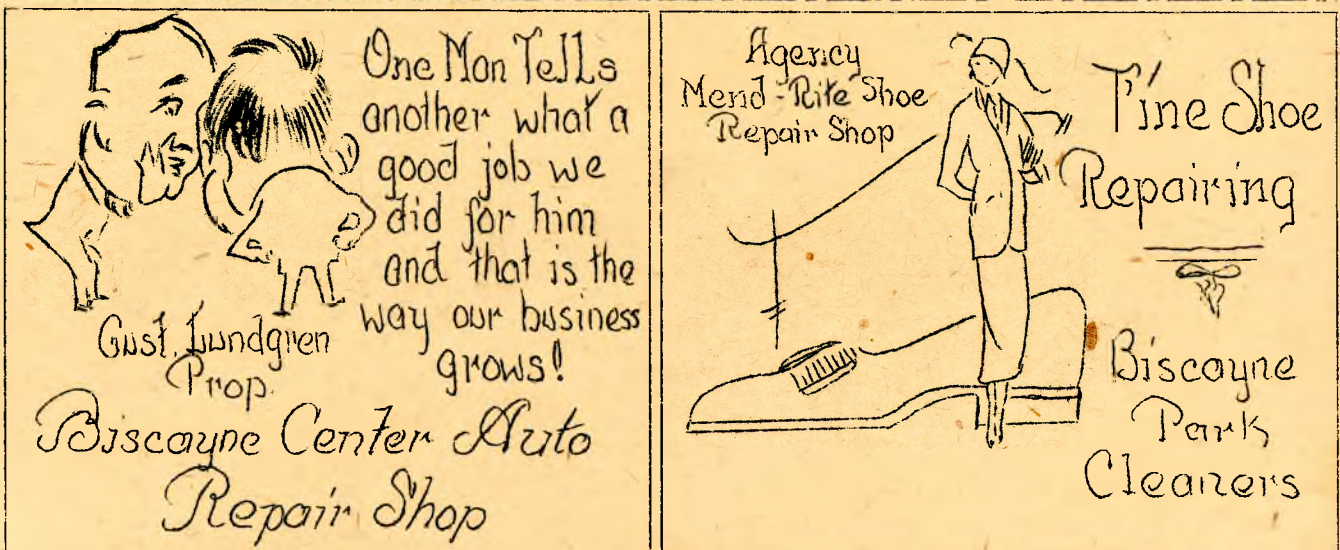 One Man Tells
another what a
good job we
did for him
and that is the
way our business
grows!
Gust. Lundgren
Prop.
Biscayne Center Auto
Repair Shop
Agency
Mend-Rite Shoe
Repair Shop
Fine Shoe
Repairing
Biscayne
Park
Cleaners